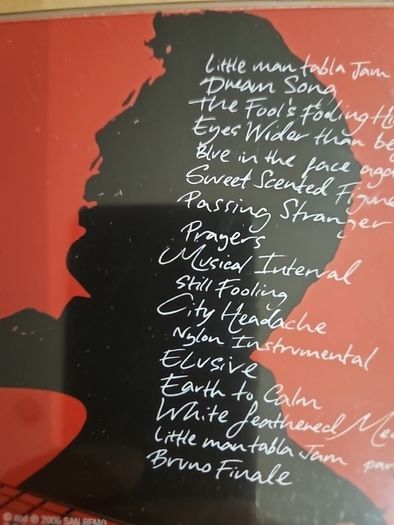 Little man tabla Jam
Dream Song
The Fool's Fooling Hi
Eyes Wider than be
Blue in the face aga
Sweet Scented Figure
Passing Stranger
Prayers
Musical Interval
Still Fooling
City Headache
Nylon Instrumental
Elusive
Earth to Calm
White feathered Me
Little man tabla Jam par
Bruno Finale
© 2006 SAN REMO